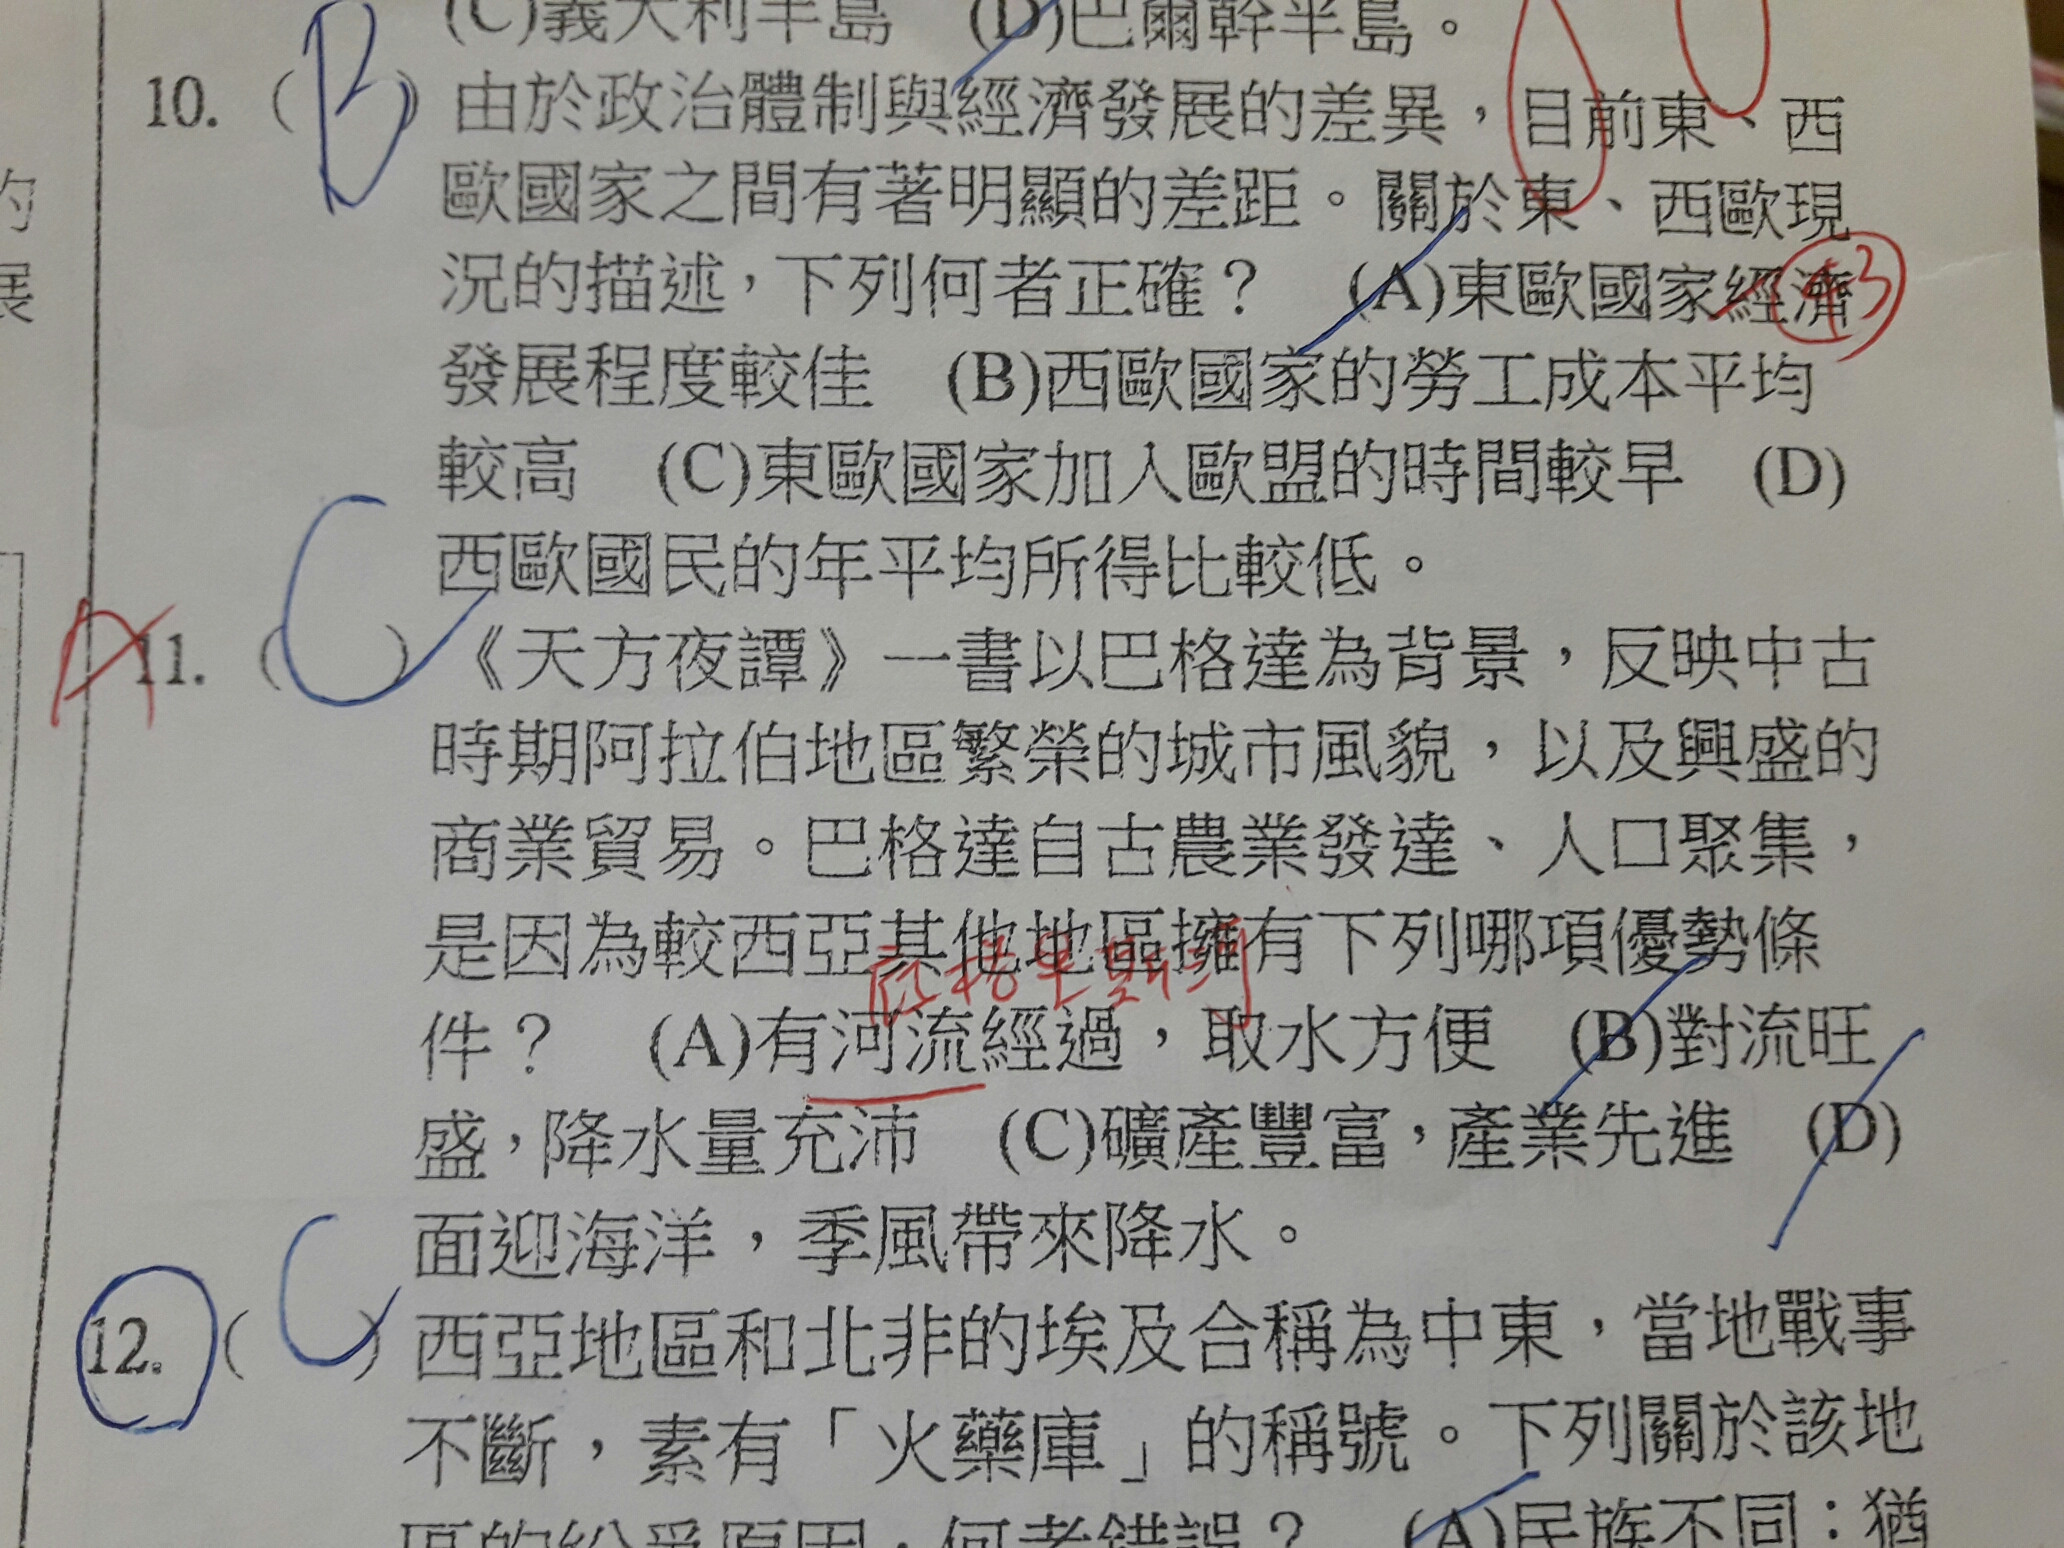 (C)義大利半島　(D)巴爾幹半島。
10. (B) 由於政治體制與經濟發展的差異，目前東、西
歐國家之間有著明顯的差距。關於東、西歐現
況的描述，下列何者正確？　(A)東歐國家經濟
-43
發展程度較佳　(B)西歐國家的勞工成本平均
較高　(C)東歐國家加入歐盟的時間較早　(D)
西歐國民的年平均所得比較低。
A 11. (C) 《天方夜譚》一書以巴格達為背景，反映中古
時期阿拉伯地區繁榮的城市風貌，以及興盛的
商業貿易。巴格達自古農業發達、人口聚集，
是因為較西亞其他地區擁有下列哪項優勢條
底格里斯河
件？　(A)有河流經過，取水方便　(B)對流旺
盛，降水量充沛　(C)礦產豐富，產業先進　(D)
面迎海洋，季風帶來降水。
12. (C) 西亞地區和北非的埃及合稱為中東，當地戰事
不斷，素有「火藥庫」的稱號。下列關於該地
區的紛爭原因，何者錯誤？　(A)民族不同：猶
的
展